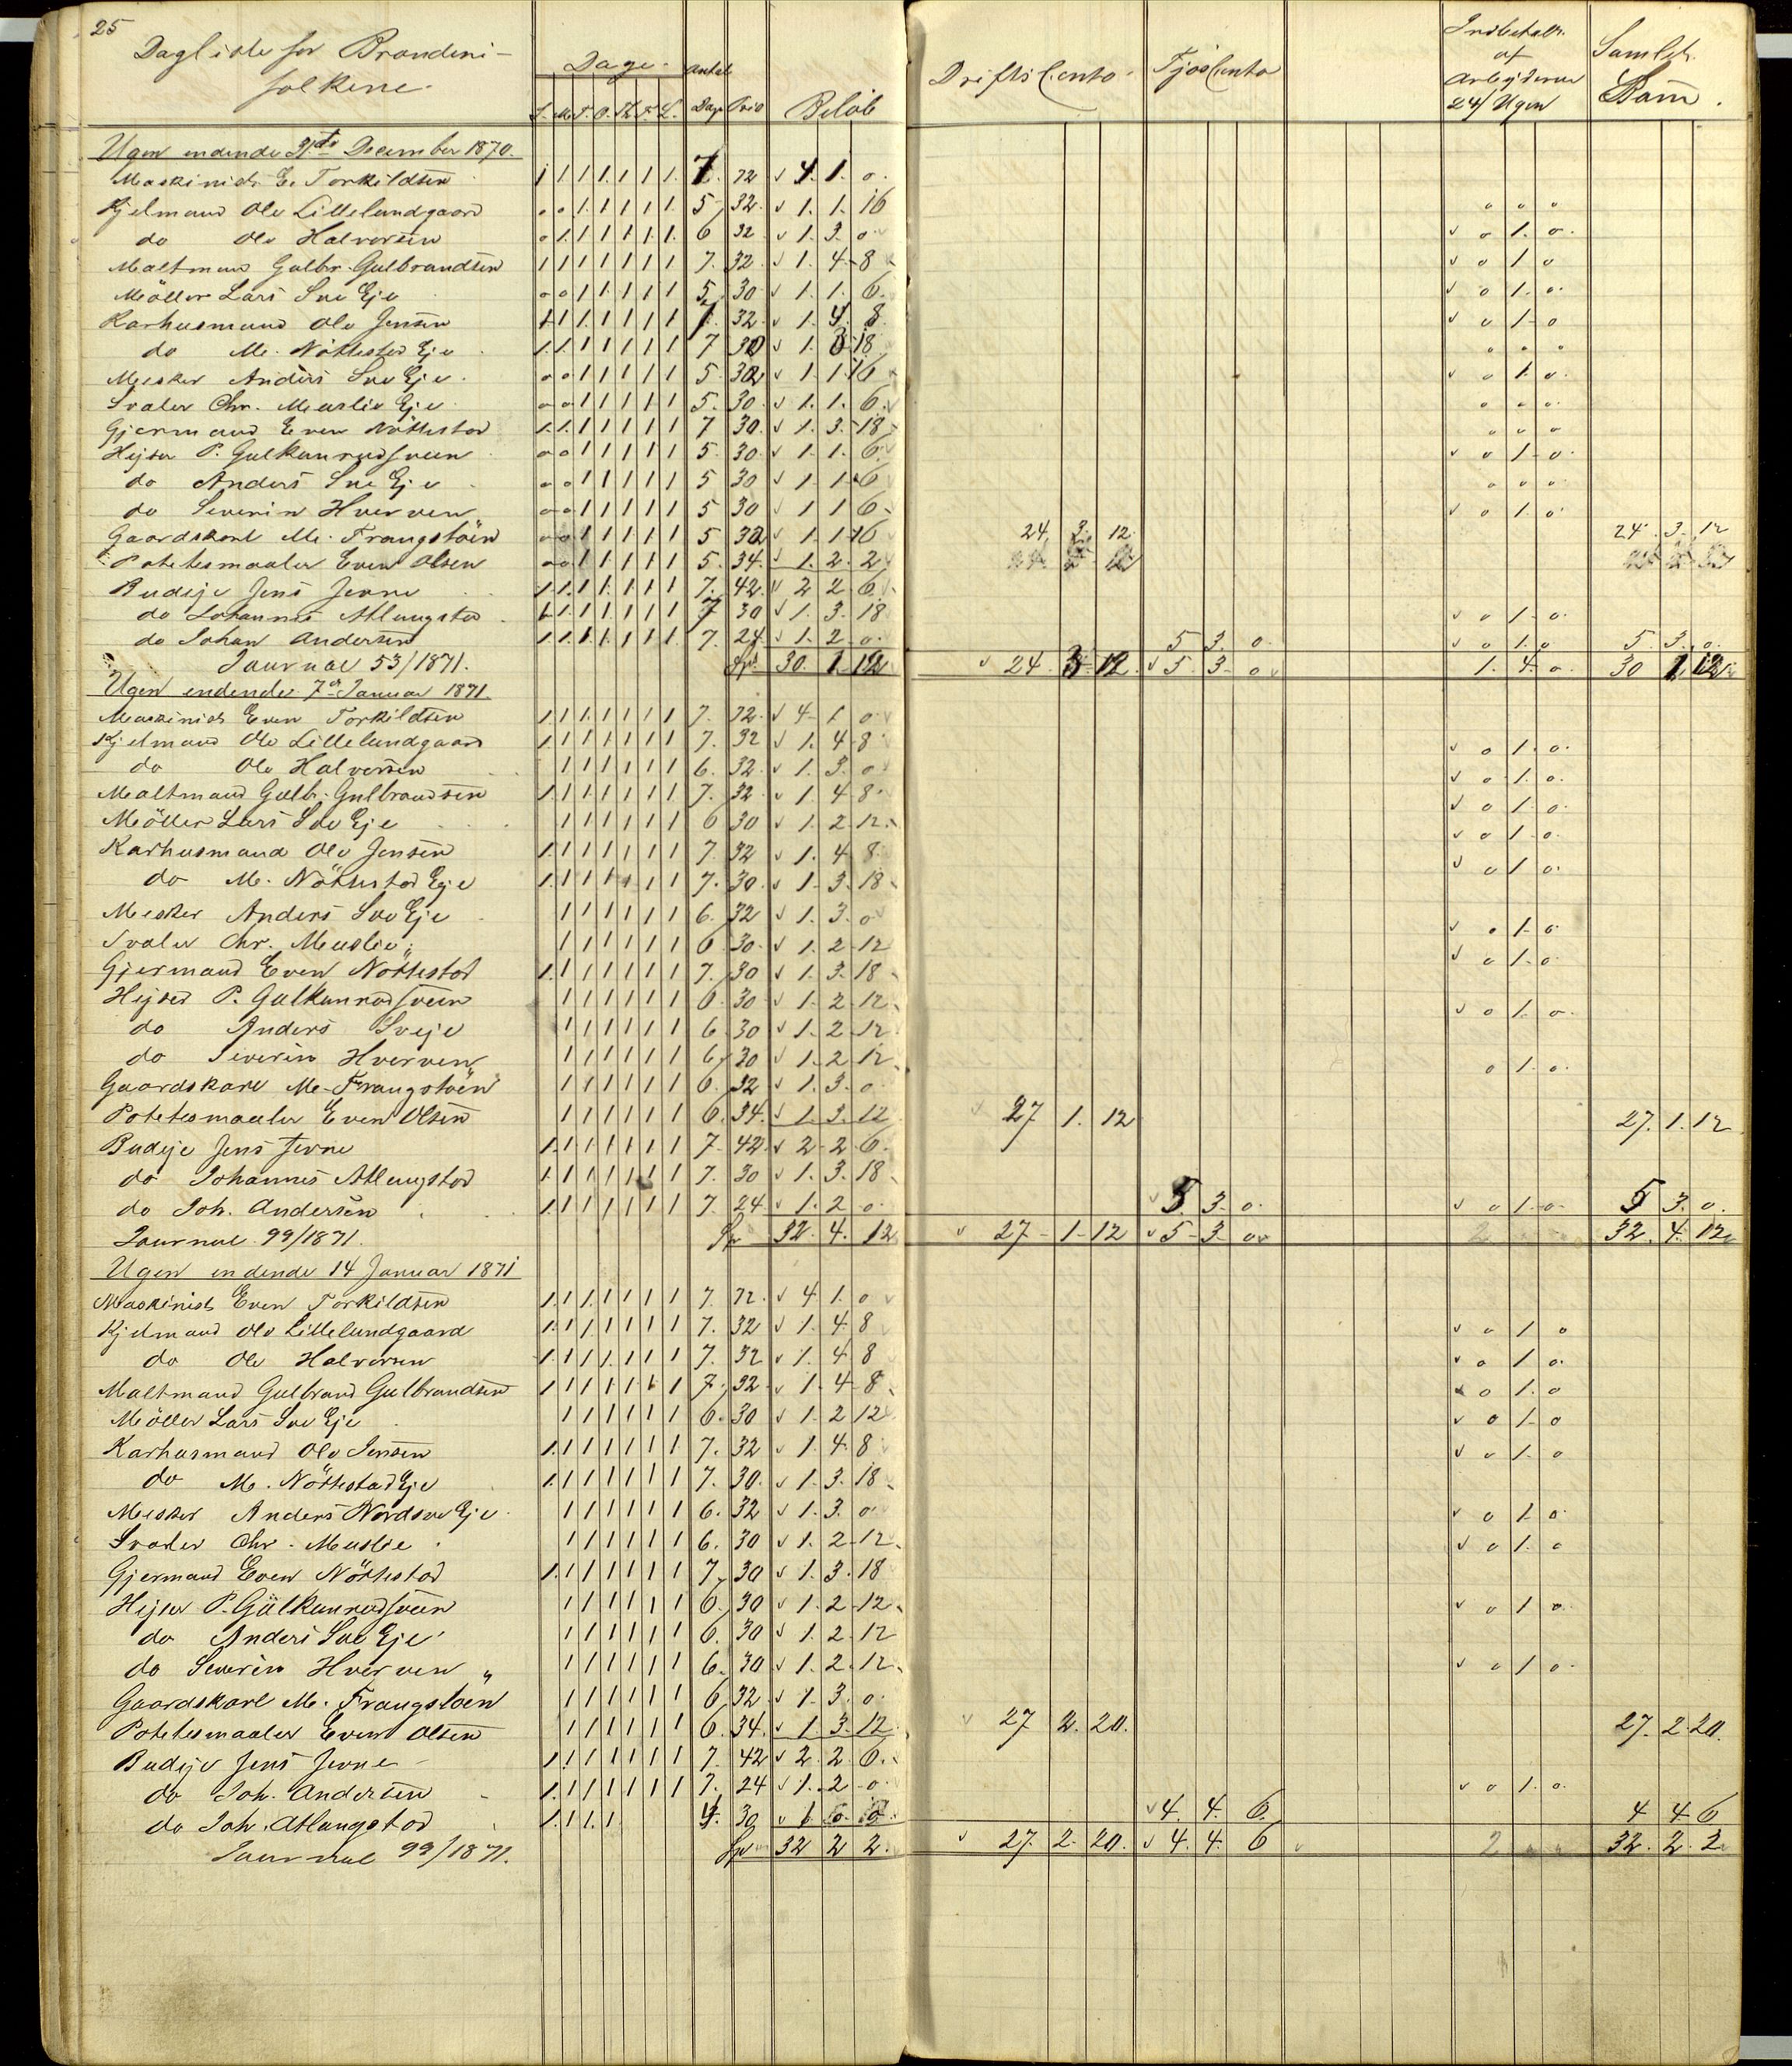 25
Dagliste for Brænderi-
folkene.
Dage. Antal
S. M. T. O. Th. F. L. Dage Pris Beløb
Drifts Conto Fjøs Conto
Indbetalt af Arbeiderne 24/ Ugen
Samlet Sum.
Ugen endende 31te December 1870.
Maskinist E. Torkildsen 1 1 1 1 1 1 1. 7. 72 4. 1. 0.
Kjelmand Ole Lillelundgaard 0 0 1. 1 1 1 1. 5 32. 1. 1. 16 0 0 0
do Ole Halvorsen 0 1. 1 1 1 1. 1. 6 32 1. 3. 0 0 1. 0.
Maltmand Gulbr. Gulbrandsen 1 1 1 1 1 1 1 7. 32. 1. 4. 8 0 1 0
Möller Lars Sve Eje 0 0 1 1 1 1 1 5 30 1. 1. 6. 0 1. 0.
Karhusmand Ole Jensen 1 1 1. 1 1 1 1 7. 32. 1. 4. 8. 0 1. 0
do M. Nöttestad Eje 1. 1. 1 1 1 1 1 7 30 1. 3. 18 0 0 0
Mesker Anders Sve Eje. 0 0 1 1 1 1 1 5. 32 1. 1. 16 0 1. 0.
Svaler Chr. Meuslie Eje 0 0 1 1 1 1 1 5. 30. 1. 1. 6. 0 0 0
Gjermand Even Nöttestad 1. 1. 1 1 1 1 1 7 30. 1. 3. 18 0 0 0
Hejser P. Gulkunrudsveen 0 0 1 1 1 1 1 5. 30. 1. 1. 6. 0 1. 0.
do Anders Sve Eje 0 0 1 1 1 1 1 5 30 1. 1. 6 0 0 0
do Severin Hverven 0 0 1 1 1 1 1 5 30 1 1 6 0 1. 0.
Gaardskarl M. Frangstöen 0 0 1 1 1 1 1 5 32 1. 1. 16 24. 3. 12. 24. 3. 12
Potetesmaaler Even Olsen 0 0 1 1 1 1 1 5. 34. 1. 2. 2
Budeje Jens Jevne 1. 1. 1 1. 1 1 1 7. 42. 2 2 6.
do Johannes Atlungstad 1. 1. 1 1 1 1 1 7 30 1. 3. 18 0 1. 0.
do Johan Andersen 1. 1. 1. 1. 1 1. 1. 7. 24 1. 2. 0. 5 3. 0. 0 1. 0 5. 3. 0.
Journal 53/1871. Spd 30. 1. 12 24. 3. 12. 5. 3. 0 1. 4. 0. 30 1. 12
Ugen endende 7de Januar 1871.
Maskinist Even Torkildsen 1. 1 1. 1 1 1 1 7. 72. 4. 1 0
Kjelmand Ole Lillelundgaard 1. 1 1 1 1 1 1 7. 32 1. 4. 8 0 1. 0.
do Ole Halversen 1 1 1 1 1 1 6. 32. 1. 3. 0 0 1. 0.
Maltmand Gulb. Gulbrandsen 1. 1 1 1 1 1 1 7. 32. 1. 4. 8. 0 1. 0.
Möller Lars Sve Eje 1 1 1 1 1 1 6 30 1. 2. 12. 0 1. 0.
Karhusmand Ole Jensen 1. 1 1 1 1 1 1 7. 32 1. 4 8. 0 1 0.
do M. Nöttestad Eje 1. 1 1 1 1 1 1 7. 30. 1. 3. 18.
Mesker Anders Sve Eje 1 1 1 1 1 1 6. 32 1. 3. 0 0 1. 0.
Svaler Chr. Meuslie 1 1 1 1 1 1 6 30. 1. 2. 12 0 1. 0.
Gjermand Even Nöttestad 1. 1 1 1 1 1 1 7. 30 1. 3. 18
Hejser P. Gulkunrudsveen 1 1 1 1 1 1 6. 30 1. 2. 12. 0 1. 0.
do Anders Sveje 1 1 1 1 1 1 6. 30 1. 2. 12
do Severin Hverven 1 1 1 1 1 1 6 30 1. 2 12 0 1. 0.
Gaardskarl M. Frangstöen 1 1 1 1 1 1 6. 32 1. 3. 0
Potetesmaaler Even Olsen 1 1 1 1 1 1 6. 34. 1. 3. 12 27 1. 12 27. 1. 12
Budeje Jens Jevne 1. 1 1 1 1 1 1 7. 42. 2. 2. 6.
do Johannes Atlungstad 1. 1 1 1 1 1 1 7. 30 1. 3. 18
do Joh. Andersen 1. 1 1 1 1 1 1 7. 24 1. 2. 0. 5 3. 0. 0 1. 0. 5 3. 0.
Journal 99/1871. Sp 32. 4. 12 27. 1. 12 5. 3. 0 2 32. 4. 12
Ugen endende 14 Januar 1871
Maskinist Even Torkildsen 1. 1 1. 1 1 1 1 7. 72. 4 1. 0
Kjelmand Ole Lillelundgaard 1. 1 1 1 1 1 1 7. 32 1. 4. 8 0 1. 0
do Ole Halvorsen 1. 1 1 1. 1 1 1 7. 32 1. 4 8 0 1 0.
Maltmand Gulbrand Gulbrandsen 1 1 1 1 1 1 1 7. 32 1. 4. 8 0 1. 0
Möller Lars Sve Eje 1 1 1 1 1 1 6. 30 1. 2 12 0 1. 0
Karhusmand Ole Jensen 1. 1 1 1 1 1 1 7. 32 1. 4. 8 0 1. 0
do M. Nöttestad Eje 1. 1 1 1 1 1 1 7. 30. 1. 3. 18.
Mesker Anders Nordsve Eje 1 1 1 1 1 1 6. 32 1. 3. 0 0 1. 0.
Svaler Chr. Meuslie 1 1 1 1 1 1 6. 30 1. 2. 12. 0 1. 0
Gjermand Even Nöttestad 1. 1 1 1 1 1 1 7. 30 1. 3. 18
Hejser P. Gulkunrudsveen 1 1 1 1 1 1 6. 30 1. 2. 12. 0 1 0.
do Anders Sve Eje 1 1 1 1 1 1 6. 30 1. 2. 12
do Severin Hverven " 1 1 1 1 1 1 6. 30 1. 2. 12. 0 1 0.
Gaardskarl M. Frangstöen 1 1 1 1 1 1 6 32 1. 3. 0.
Potetesmaaler Even Olsen 1 1 1 1 1 1 6. 34. 1. 3. 12 27 2. 20. 27. 2. 20.
Budeje Jens Jevne 1. 1 1 1 1 1 1 7. 42 2. 2. 6.
do Joh. Andersen 1. 1 1 1 1 1 1 7. 24 1. 2. 0. 0 1. 0.
do Joh. Atlungstad 1. 1 1. 1 4. 30 1. 0. 0. 4. 4. 6. 4 4 6
Journal 99/1871. Spd 32 2 2. 27. 2. 20. 4. 4. 6 2 32. 2. 2